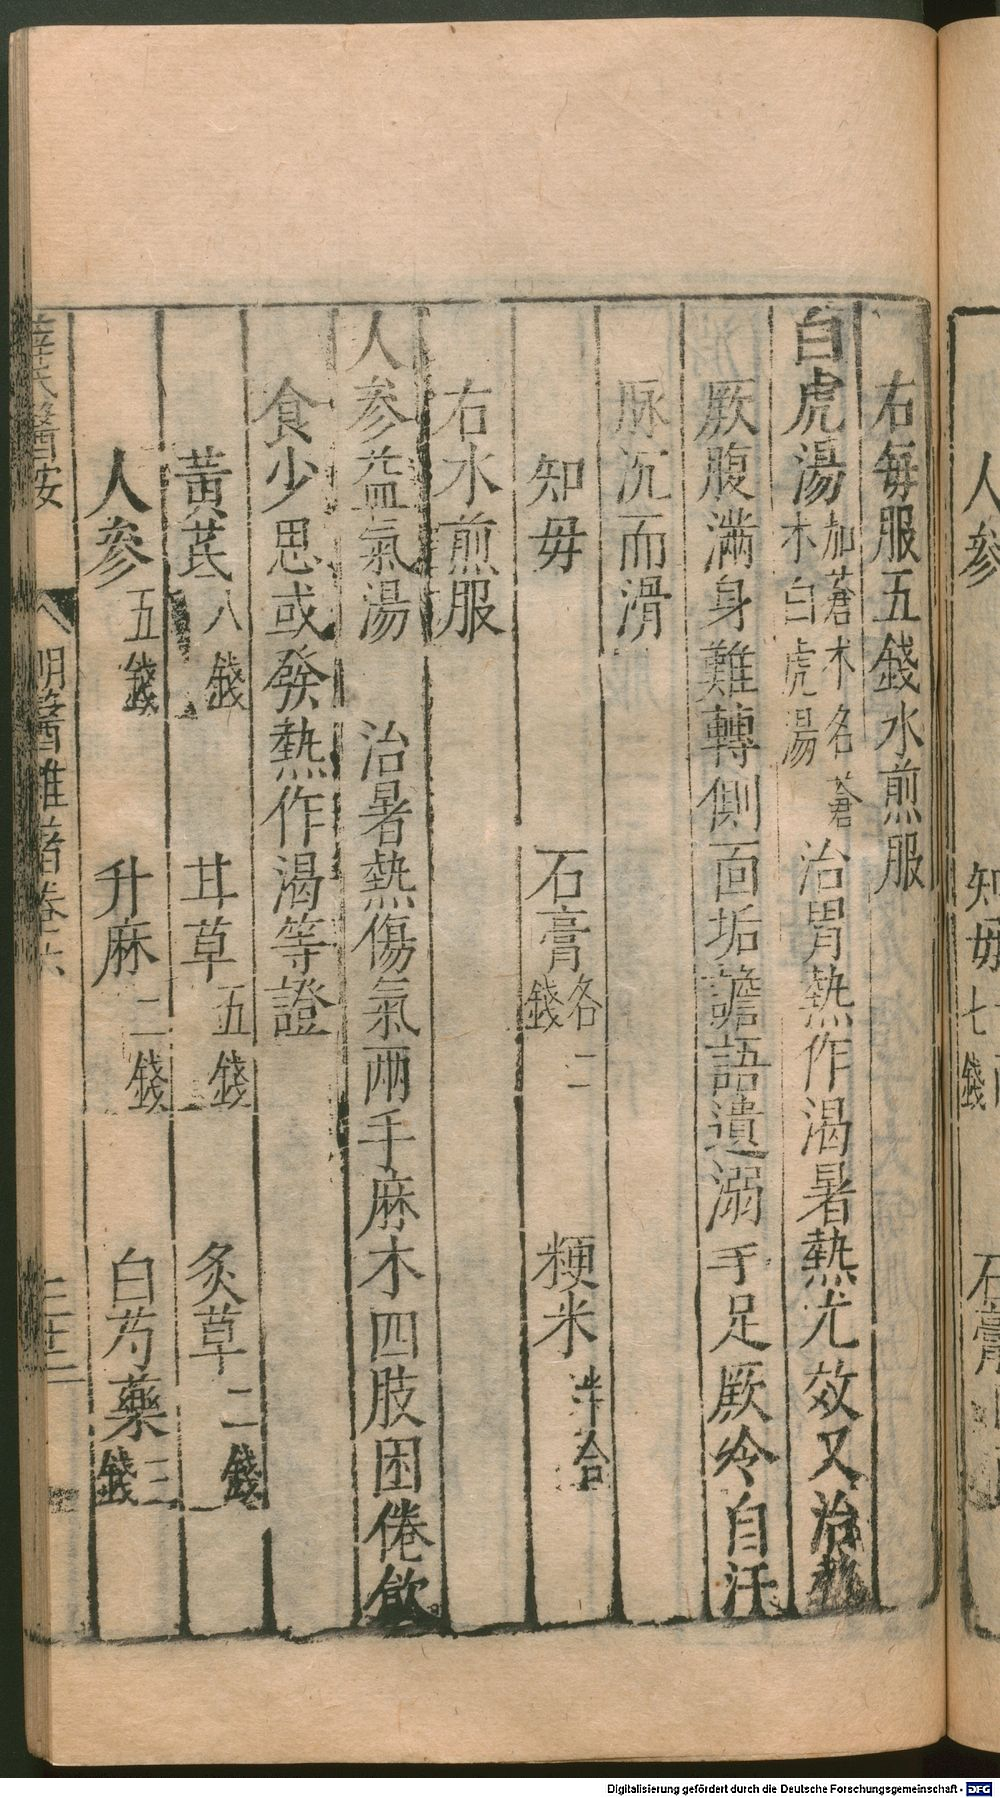 右每服五錢水煎服
白虎湯 加蒼术名蒼术白虎湯 治胃熱作渴暑熱尤效又治熱
厥腹滿身難轉側面垢譫語遺溺手足厥冷自汗
脉沉而滑
知母 石膏各二錢 粳米半合
右水煎服
人參益氣湯 治暑熱傷氣兩手麻木四肢困倦飲
食少思或發熱作渴等證
黃芪八錢 甘草五錢 炙草二錢
人參五錢 升麻二錢 白芍藥三錢
薛氏醫按 明醫雜著卷六 三十二
人參 知母七錢 石膏
Digitalisierung gefördert durch die Deutsche Forschungsgemeinschaft - DFG